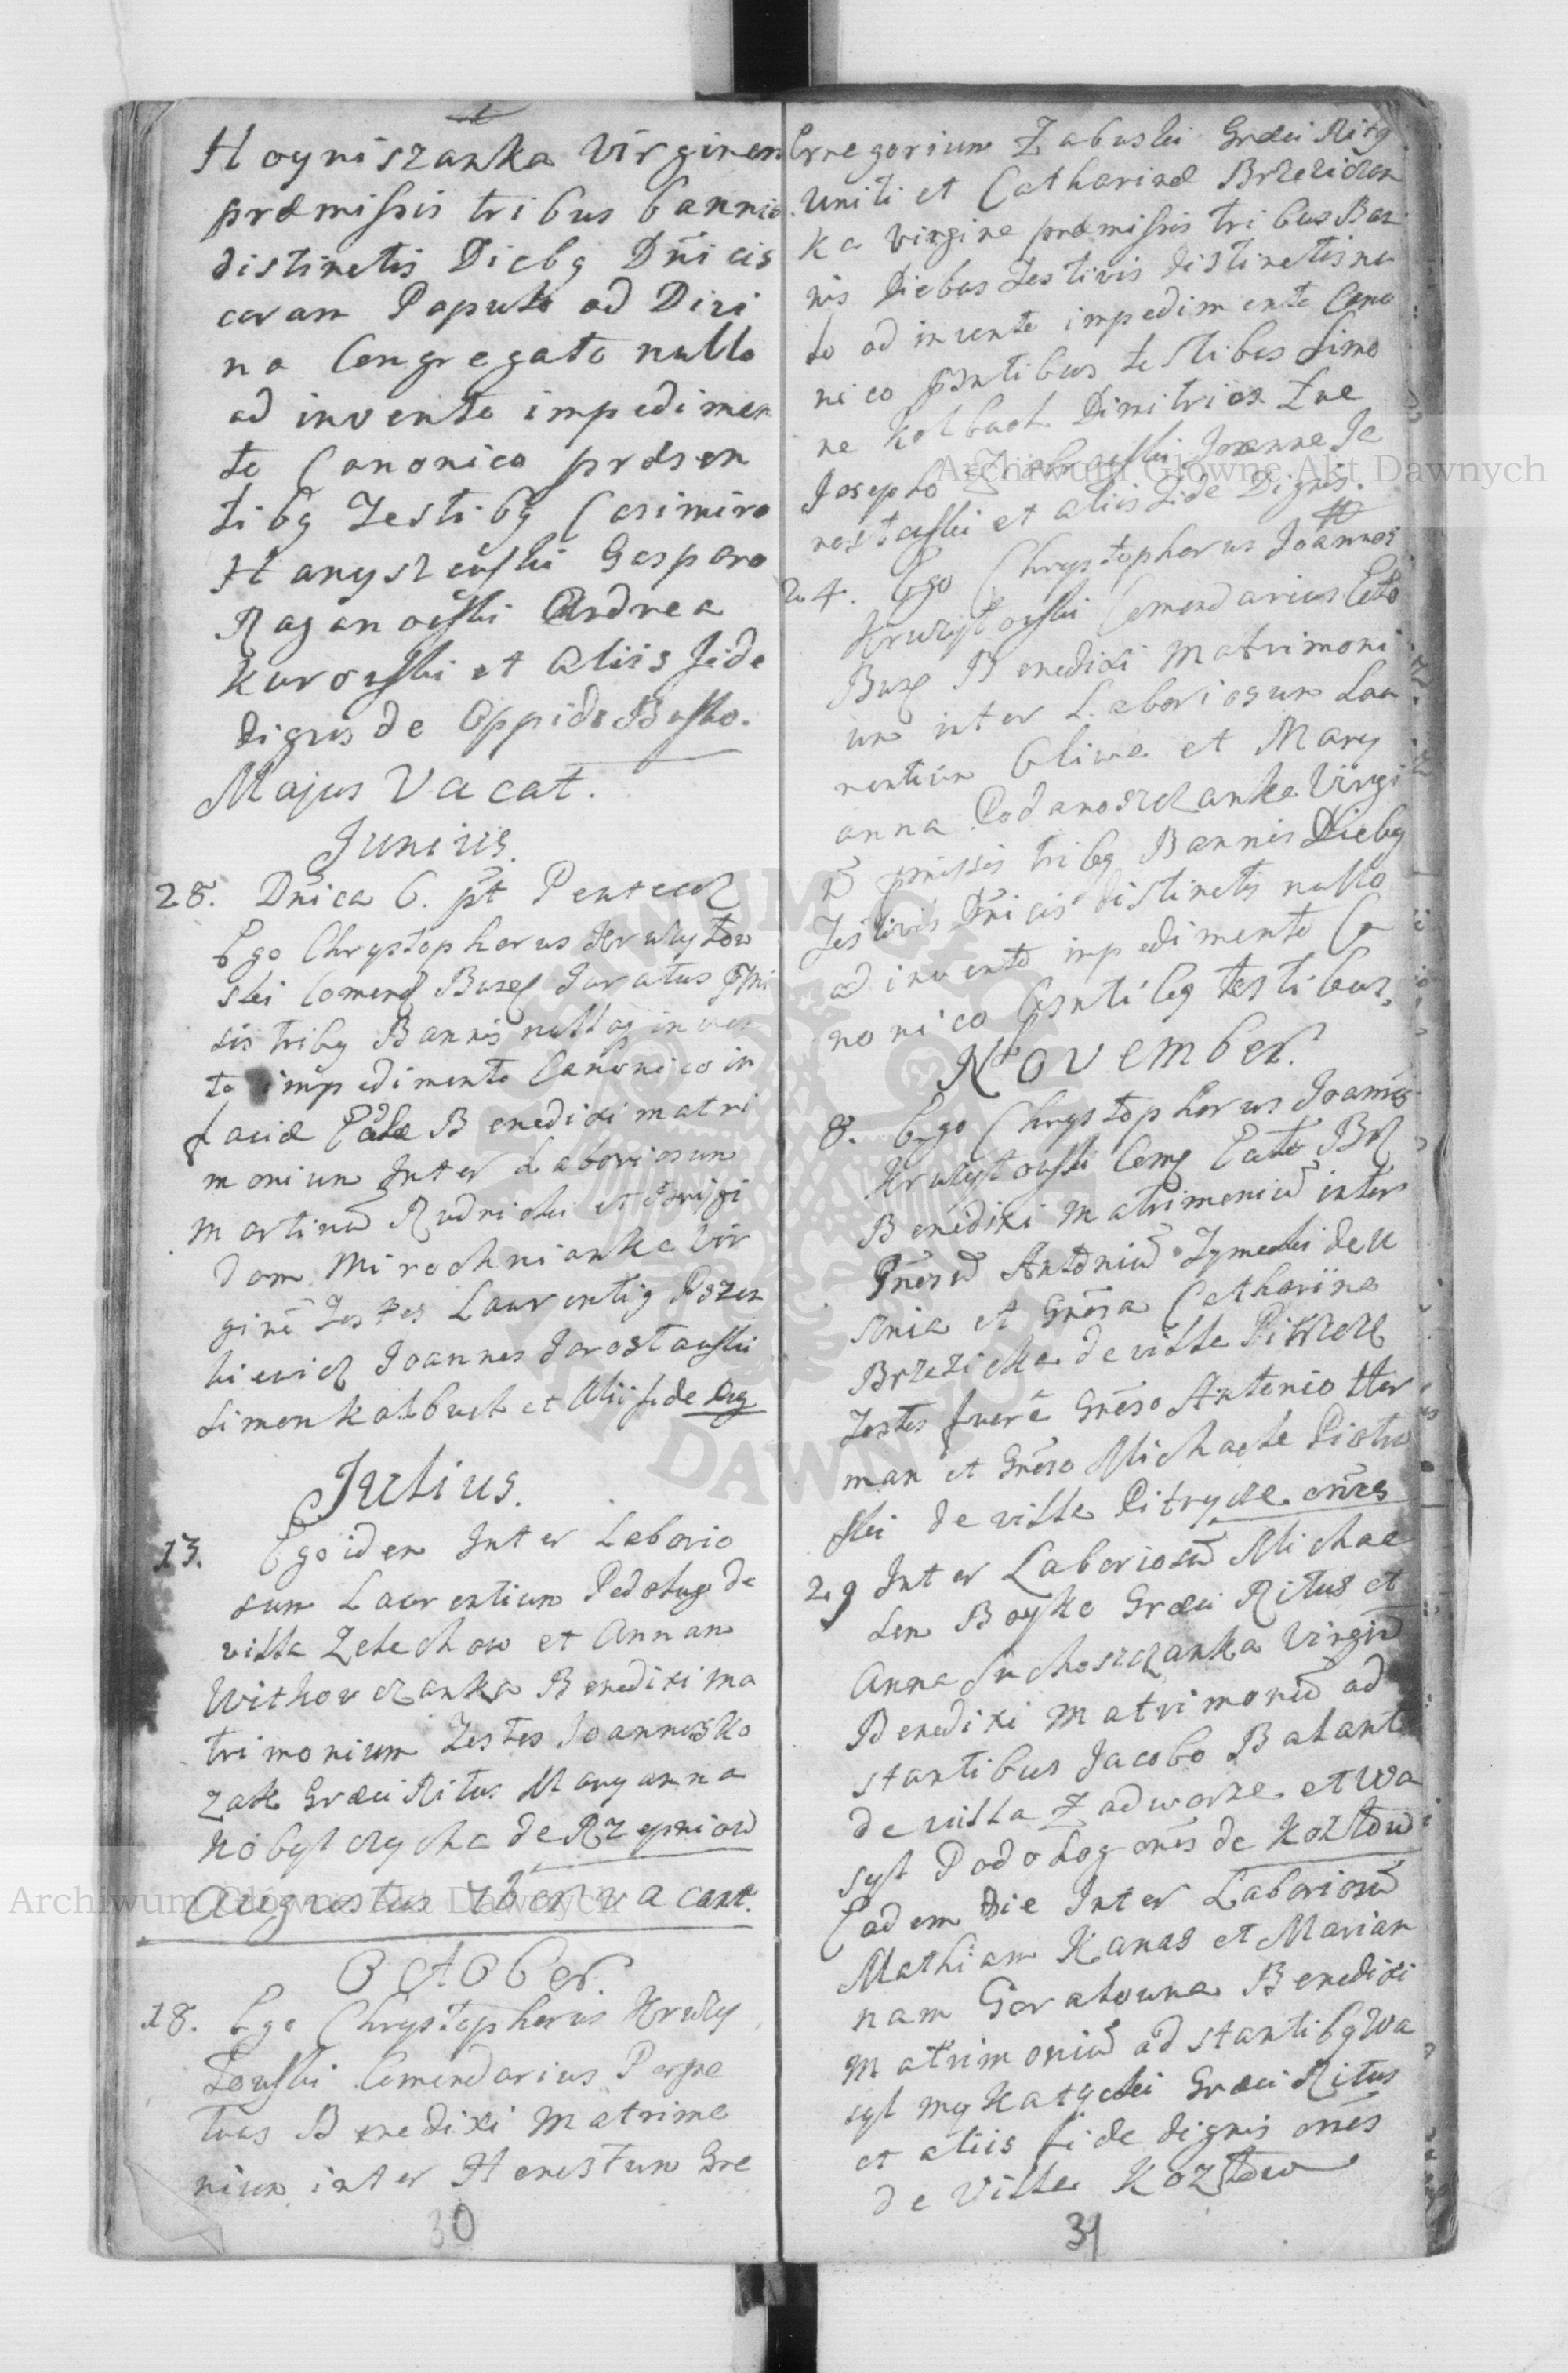 Hoyniszanka Virginem
præmissis tribus bannis
distinctis Diebg Dnicis
coram Populo ad Divi
na Congregato nullo
ad invento impedimen
to Canonico præsen
tibg Testibg Casimiro
Hanyszewski Gasparo
Raganowski Andrea
Kurowski et Aliis fide
dignis de Oppido Busko.
Majus Vacat.
Junius.
28. Dnica 6. pt Pentecos
Ego Chrystophorus Krulzytow
ski Comend Busc Juratus
sis tribg Bannis inven
to impedimento Canonico in
facie Benedixi matri
monium Inter Laboriosum
Martinū Rudnicki et Brigi
dam Mirochnianka Vir
ginē Testes Laurentig Pszen
Joannes Jarostawski
Simon Kolbuch et Alii fide Dig
Julius.
13. Ego idem Inter Laborio
sum Laurentium Podolug de
villa Zelechow et Annam
Withowczanka Benedixi ma
trimonium Testes Joannes Ko
zak Græci Ritus Maryanna
Kobylczycha de Rzepniow
Augustus 7ber vacant.
October.
18. Ego Chrystophorus Krulzy
towski Comendarius Perpe
tuus Benedixi Matrimo
nium inter Honestum Gre
30
Gregorium Zabuski Græci Ritg
Uniti et Catharinæ Brzeziczan
ka virgine præmissis tribus Ban
nis Diebus Festivis distinctis nu
lo ad invento impedimento Cano
nico pntibus testibus Simo
ne Kolbuch Dimitrio
Josepho Joanne Ja
rostawski et aliis Fide Dignis.
24. Ego Chrystophorus Joannes
Krulzytowski Comendarius
Busc Benedixi Matrimoni
um inter Laboriosum Lau
rentium Gliwa et Mary
anna Podanoszczanka Virgi
tribg Bannis Diebg
Festivis Dnicis distinctis nullo
ad invento impedimento Ca
nonico testibus.
November.
8. Ego Chrystophorus Joannes
Krulzytowski Comg
Benedixi Matrimoniū inter
Gnesū Antoniū Zymecki de
et Gnesa Catharina
Brzezicka de villa
Testes fuere Gneso Antonio Her
man et Gneso Michaele Piotro
ski de villa Pitrycze omes
29 Inter Laboriosū Michae
lem Boyko Græci Ritus et
Anna Suchoszczanka Virginū
Benedixi Matrimoniū ad
stantibus Jacobo Bałant
de villa Zadworze et Wa
syl Podolog omes de Koztow
Eadem Die Inter Laboriosū
Mathiam Kanas et Marian
nam Goratowna Benedixi
Matrimoniū ad stantibg Wa
syl Græci Ritus
et aliis fide dignis omes
de Villa Koztow
31
Archiwum Główne Akt Dawnych
Archiwum Główne Akt Dawnych